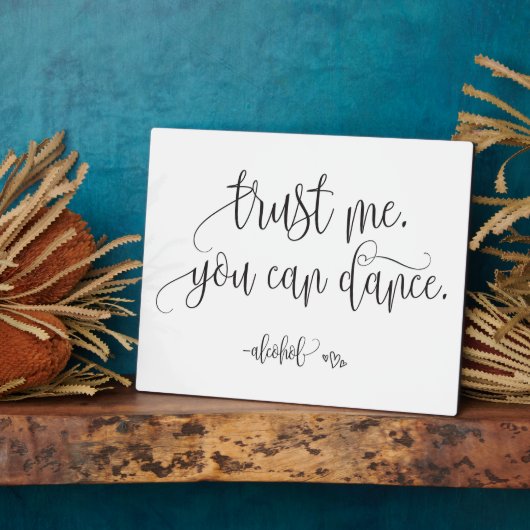 trust me.
you can dance.
-alcohol